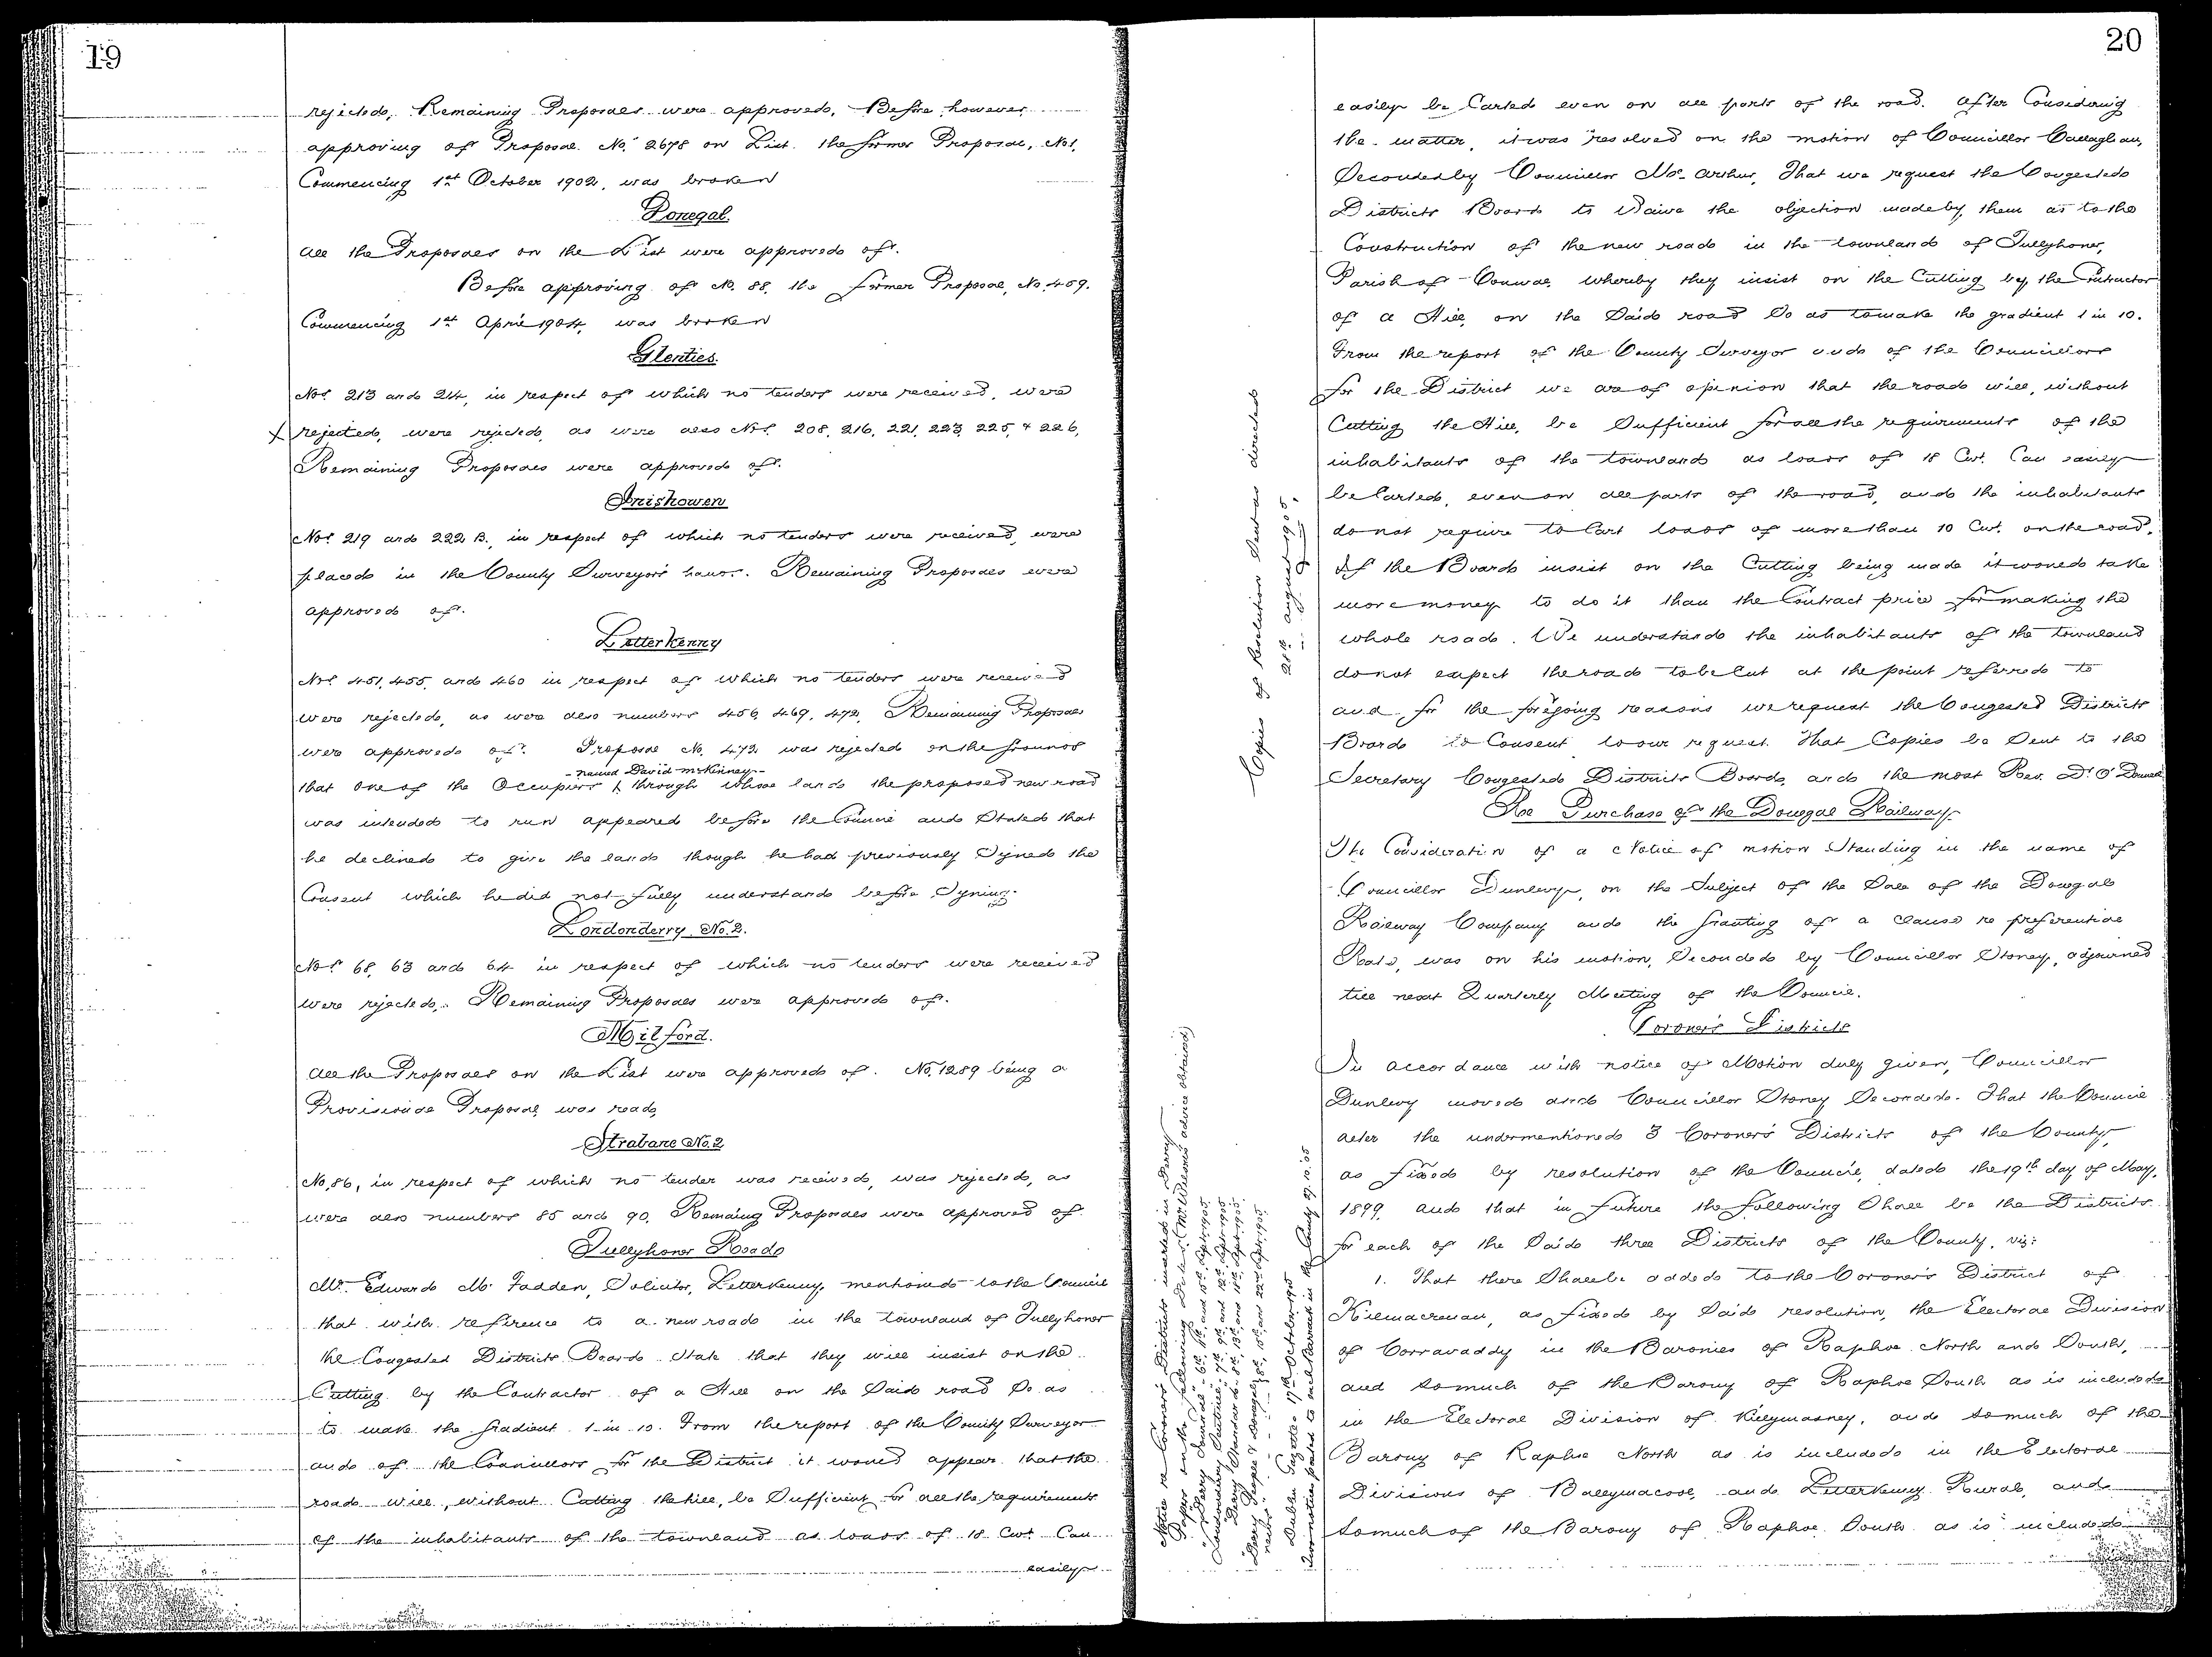 19
rejected, Remaining Proposals were approved. Before, however,
approving of Proposal No. 2678 on List the former Proposal, No 1,
Commencing 1st October 1902, was broken
Donegal.
All the Proposals on the List were approved of.
Before approving of No. 88, the former Proposal, No. 459.
Commencing 1st April 1904, was broken
Glenties.
Nos 213 and 214, in respect of which no tenders were received, were
x rejected, were rejected, as were also Nos. 208, 216, 221, 223, 225, & 226,
Remaining Proposals were approved of.
Inishowen
Nos 219 and 222 B., in respect of which no tenders were received, were
placed in the County Surveyor's hands. Remaining Proposals were
approved of.
Letterkenny
Nos 451, 455, and 460 in respect of which no tenders were received
were rejected, as were also numbers 456, 469, 472, Remaining Proposals
were approved of. Proposal No. 472 was rejected on the grounds
- named David McKinney -
that one of the Occupiers through whose lands the proposed new road
was intended to run appeared before the Council and Stated that
he declined to give the lands though he had previously Signed the
Consent which he did not fully understand before Signing.
Londonderry No. 2.
Nos 68, 63 and 64 in respect of which no tenders were received
were rejected. Remaining Proposals were approved of.
Milford.
All the Proposals on the List were approved of. No. 1289 being a
Provisional Proposal, was read,
Strabane No. 2
No. 86, in respect of which no tender was received, was rejected, as
were also numbers 85 and 90. Remaing Proposals were approved of.
Tullyhonor Road
Mr. Edward Mc Fadden, Solicitor, Letterkenny, mentioned to the Council
that with reference to a new road in the townland of Tullyhonor
the Congested Districts Board State that they will insist on the
Cutting by the Contractor of a Hill on the Said road So as
to make the gradient 1 in 10. From the report of the County Surveyor
and of the Councillors for the District it would appear that the
road will, without Cutting the hill, be Sufficient for all the requirements
of the inhabitants of the townland as loads of 18 Cwt. Can
easily
20
easily be Carted even on all parts of the road. After Considering
the matter, it was resolved on the motion of Councillor Callaghan,
Seconded by Councillor Mc. Arthur, That we request the Congested
Districts Board to Waive the objection made by them as to the
Construction of the new road in the townland of Tullyhonor,
Parish of Conwal, whereby they insist on the Cutting by the Contractor
of a Hill on the Said road So as to make the gradient 1 in 10.
From the report of the County Surveyor and of the Councillors
for the District we are of opinion that the road will, without
Cutting the Hill, be Sufficient for all the requirements of the
inhabitants of the townland as loads of 18 Cwt. Can easily
be Carted, even on all parts of the road, and the inhabitants
do not require to Cart loads of more than 10 Cwt. on the road.
If the Board insist on the Cutting being made it would take
more money to do it than the Contract price for making the
whole road. We understand the inhabitants of the townland
do not expect the road to be Cut at the point referred to
and for the foregoing reasons we request the Congested Districts
Board to Consent to our request. That Copies be Sent to the
Secretary Congested Districts Board, and the most Rev. Dr. O'Donnell
Re Purchase of the Donegal Railway.
The Consideration of a Notice of motion Standing in the name of
Councillor Dunlevy, on the Subject of the Sale of the Donegal
Railway Company and the granting of a clause re preferential
Rates, was on his motion, Seconded by Councillor Stoney, adjourned
till next Quarterly Meeting of the Council.
Coroner's Districts
In accordance with notice of Motion duly given, Councillor
Dunlevy moved and Councillor Stoney Seconded. That the Council
alter the undermentioned 3 Coroners Districts of the County,
as fixed by resolution of the Council, dated the 19th day of May,
1899, and that in future the following Shall be the Districts
for each of the Said three Districts of the County, viz:
1. That there Shall be added to the Coroner's District of
Kilmacrenan, as fixed by Said resolution, the Electoral Division
of Corravaddy in the Baronies of Raphoe North and South,
and So much of the Barony of Raphoe South as is included
in the Electoral Division of Killymasney, and So much of the
Barony of Raphoe North as is included in the Electoral
Divisions of Ballymacool, and Letterkenny Rural, and
So much of the Barony of Raphoe South as is included
Copies of Resolution Sent as directed
28th August 1905.
Notice re Coroner's Districts inserted in Derry
Papers on the following
"Derry
Londonderry Sentinel
Derry Standard
Dublin Gazette 17th October 1905